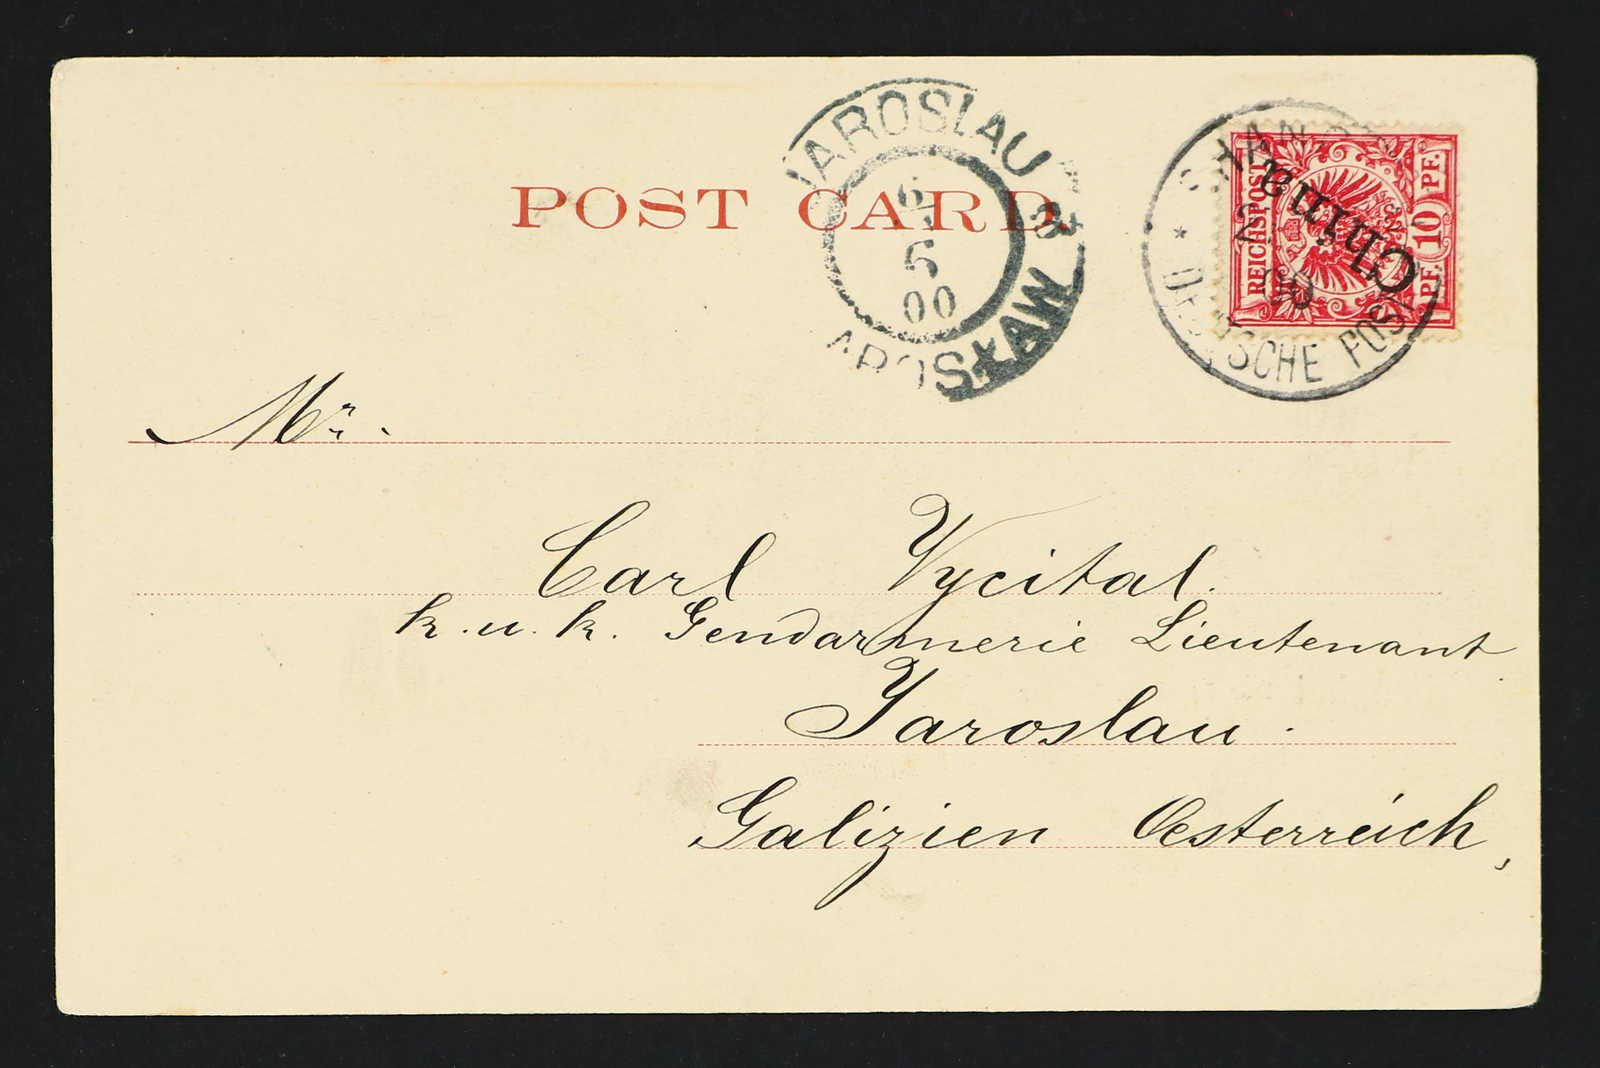 POST CARD.
JAROSLAU
6
5
00
JAROSŁAW
DEUTSCHE POST
00
REICHSPOST
PF. 10 PF.
China
Mr.
Carl Vycital.
k. u. k. Gendarmerie Lieutenant
Jaroslau.
Galizien Oesterreich,